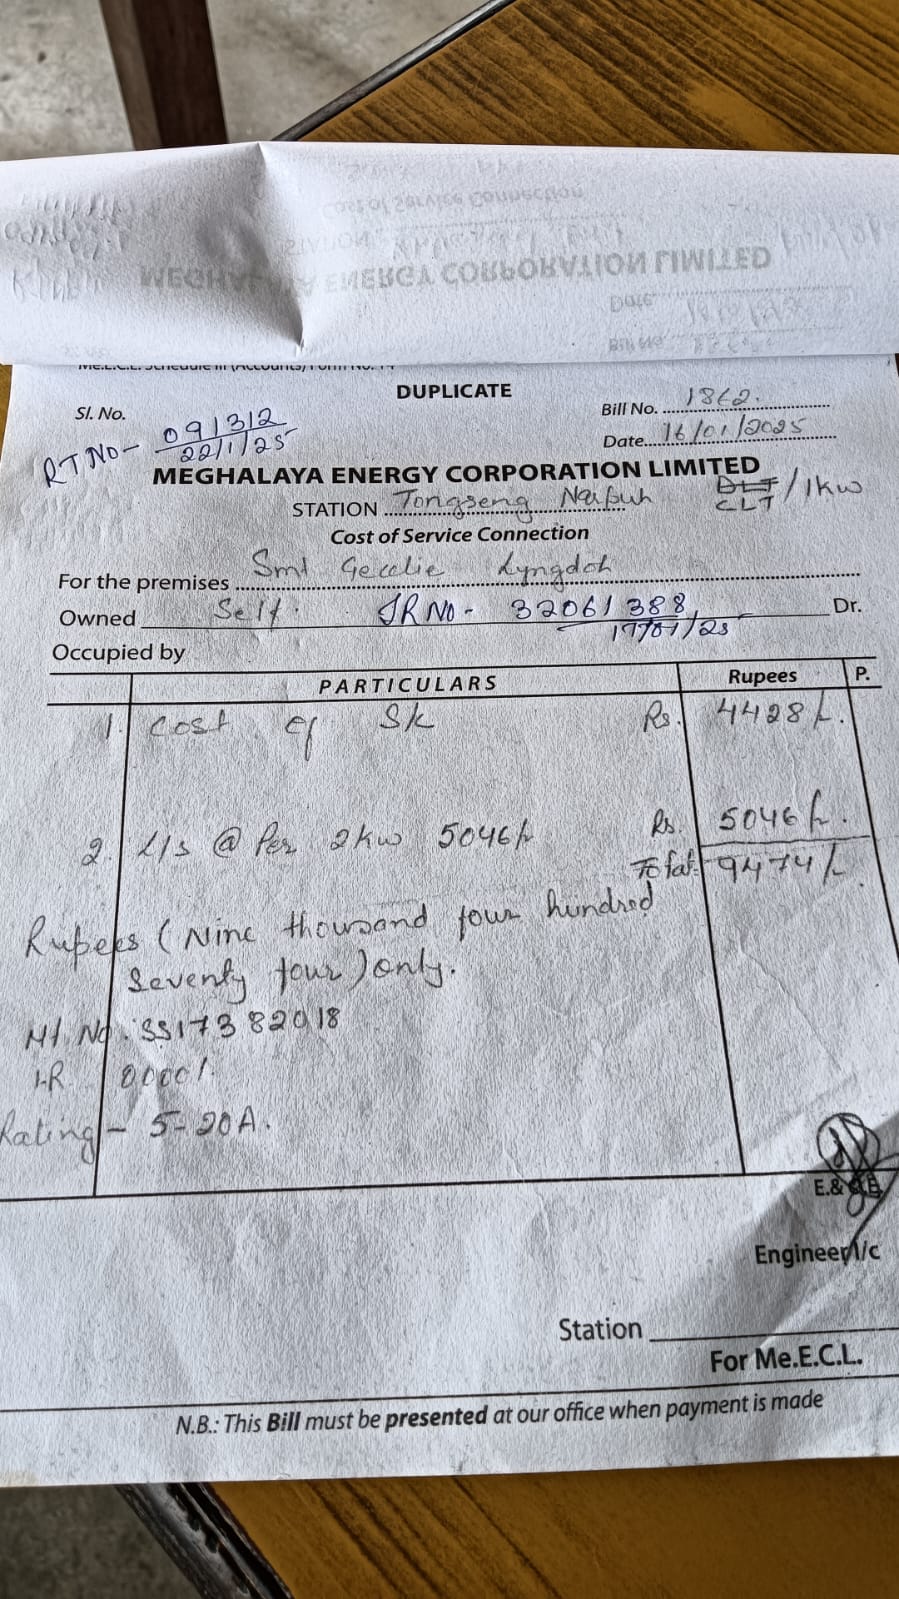 DUPLICATE
Sl. No.
Bill No. 1862.
RT NO- 091312
22/1/25
Date 16/01/2025
MEGHALAYA ENERGY CORPORATION LIMITED
STATION Tongseng Narpuh
CLT /1kw
Cost of Service Connection
For the premises Smt Gecelie Lyngdoh
Owned Self. JR NO- 32061388 Dr.
17/01/25
Occupied by
PARTICULARS Rupees P.
1. Cost of SK Rs. 4428/-.
2. L/s @ Per 2kw 5046/- Rs. 5046/-.
Total 9474/-
Rupees (Nine thousand four hundred
Seventy four) only.
Mt. No. SS17382018
I-R 00001.
Rating - 5-20A.
E.&
Engineer I/c
Station
For Me.E.C.L.
N.B.: This Bill must be presented at our office when payment is made